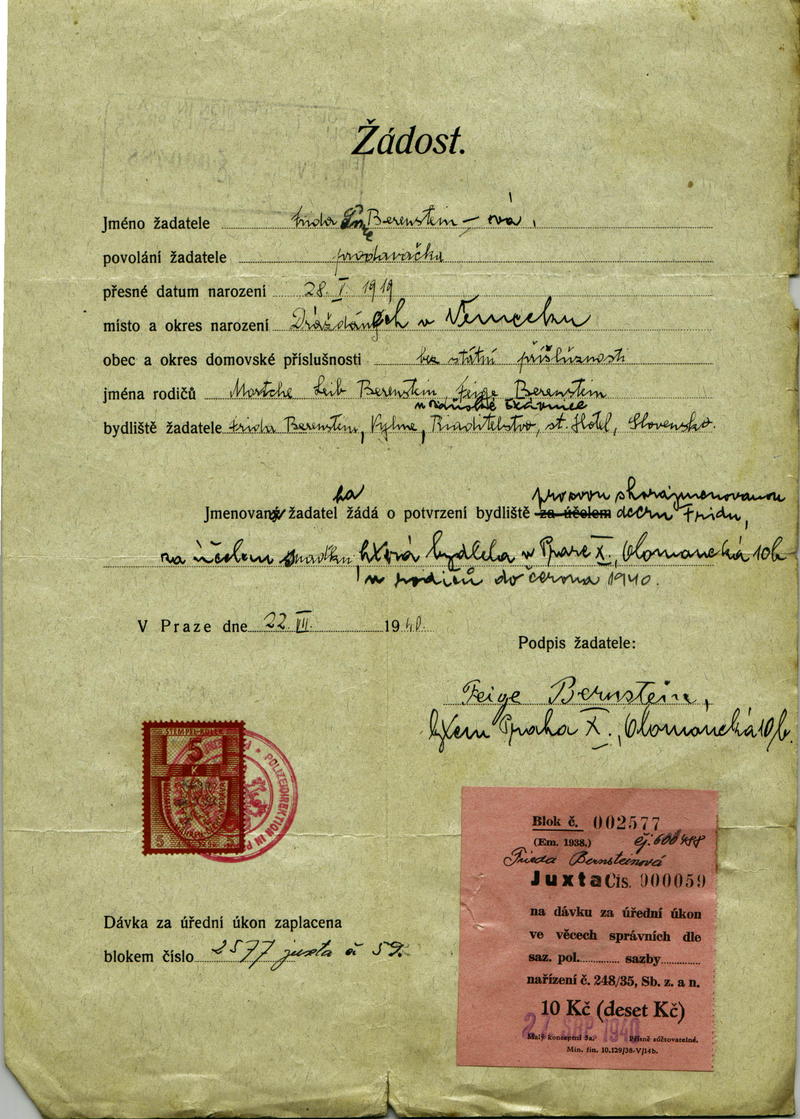 Žádost.
Jméno žadatele Frida Berenstein-ová,
povolání žadatele prodavačka
přesné datum narození 28. I. 1919
místo a okres narození Drážďanech v Německu
obec a okres domovské příslušnosti bez státní příslušnosti
jména rodičů Berenstein, Feige Berenstein
bydliště žadatele Frida Berenstein, Vyhne, Riaditelstvo, st. Hotel, Slovensko.
Jmenovaný žadatel žádá o potvrzení bydliště za účelem dceru Fridu,
za účelem která bydlela v Praze X., Olomoucká 10b
u rodičů do června 1940.
V Praze dne 22. VII. 1940.
Podpis žadatele:
Feige Bernstein,
bytem Praha X., Olomoucká 10/b.
STEMPEL-KOLEK
5
K
POLIZEIDIREKTION IN
Dávka za úřední úkon zaplacena
blokem číslo 2577 juxta č 59.
Blok č. 002577
(Em. 1938.)
Frieda Bernsteinová
Juxta Čís. 900059
na dávku za úřední úkon
ve věcech správních dle
saz. pol. sazby
nařízení č. 248/35, Sb. z. a n.
10 Kč (deset Kč)
27. SRP. 1940
Malý konceptní 3a. Přísně zúčtovatelné.
Min. fin. 10.129/38-V/14b.